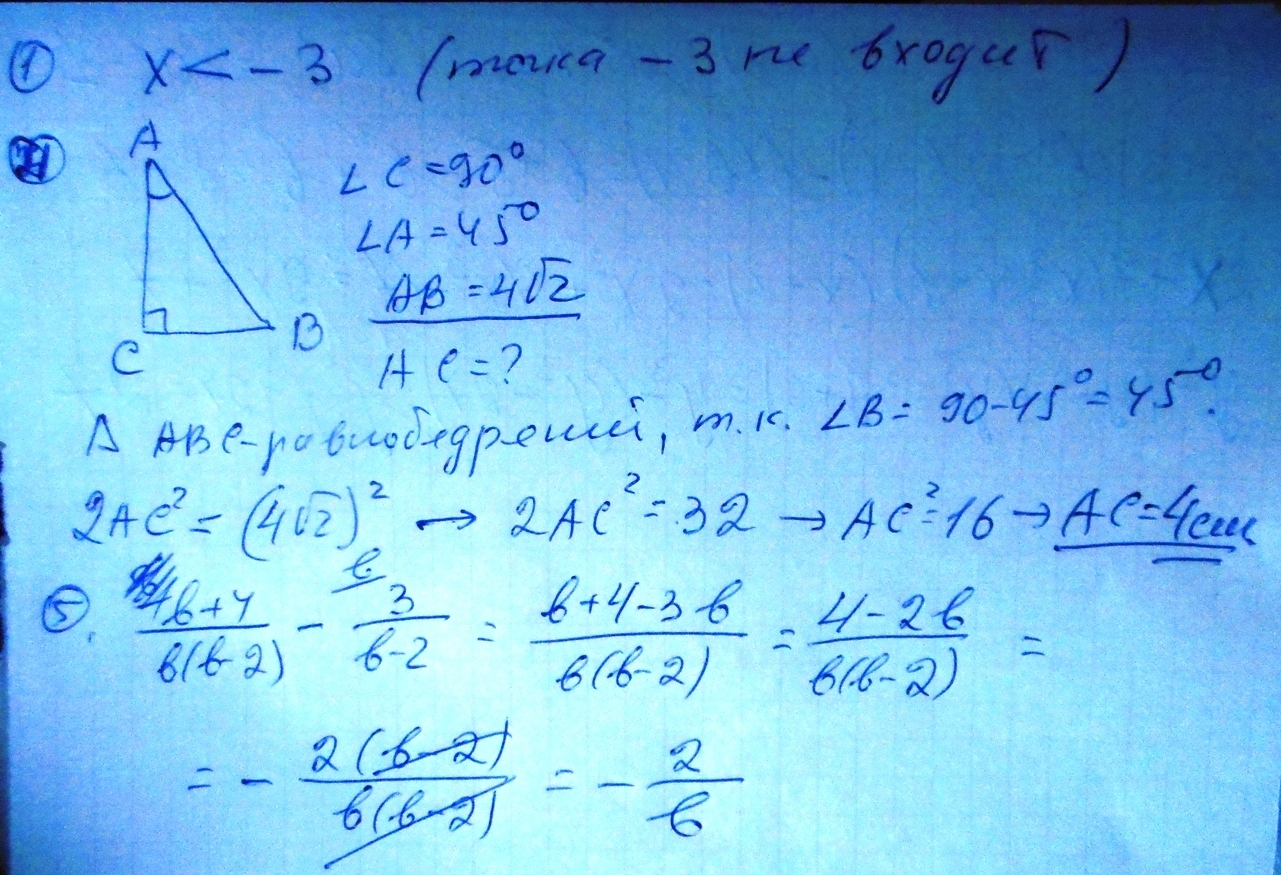 ① x < -3 (точка -3 не входит)
A
C
B
∠C = 90°
∠A = 45°
AB = 4√2
AC = ?
Δ ABC - равнобедренный, т.к. ∠B = 90-45° = 45°.
2AC² = (4√2)² → 2AC² = 32 → AC² = 16 → AC = 4см
⑤. 4b+4 / b(b-2) - 3 / b-2 = b+4-3b / b(b-2) = 4-2b / b(b-2) =
b
= - 2(b-2) / b(b-2) = - 2 / b